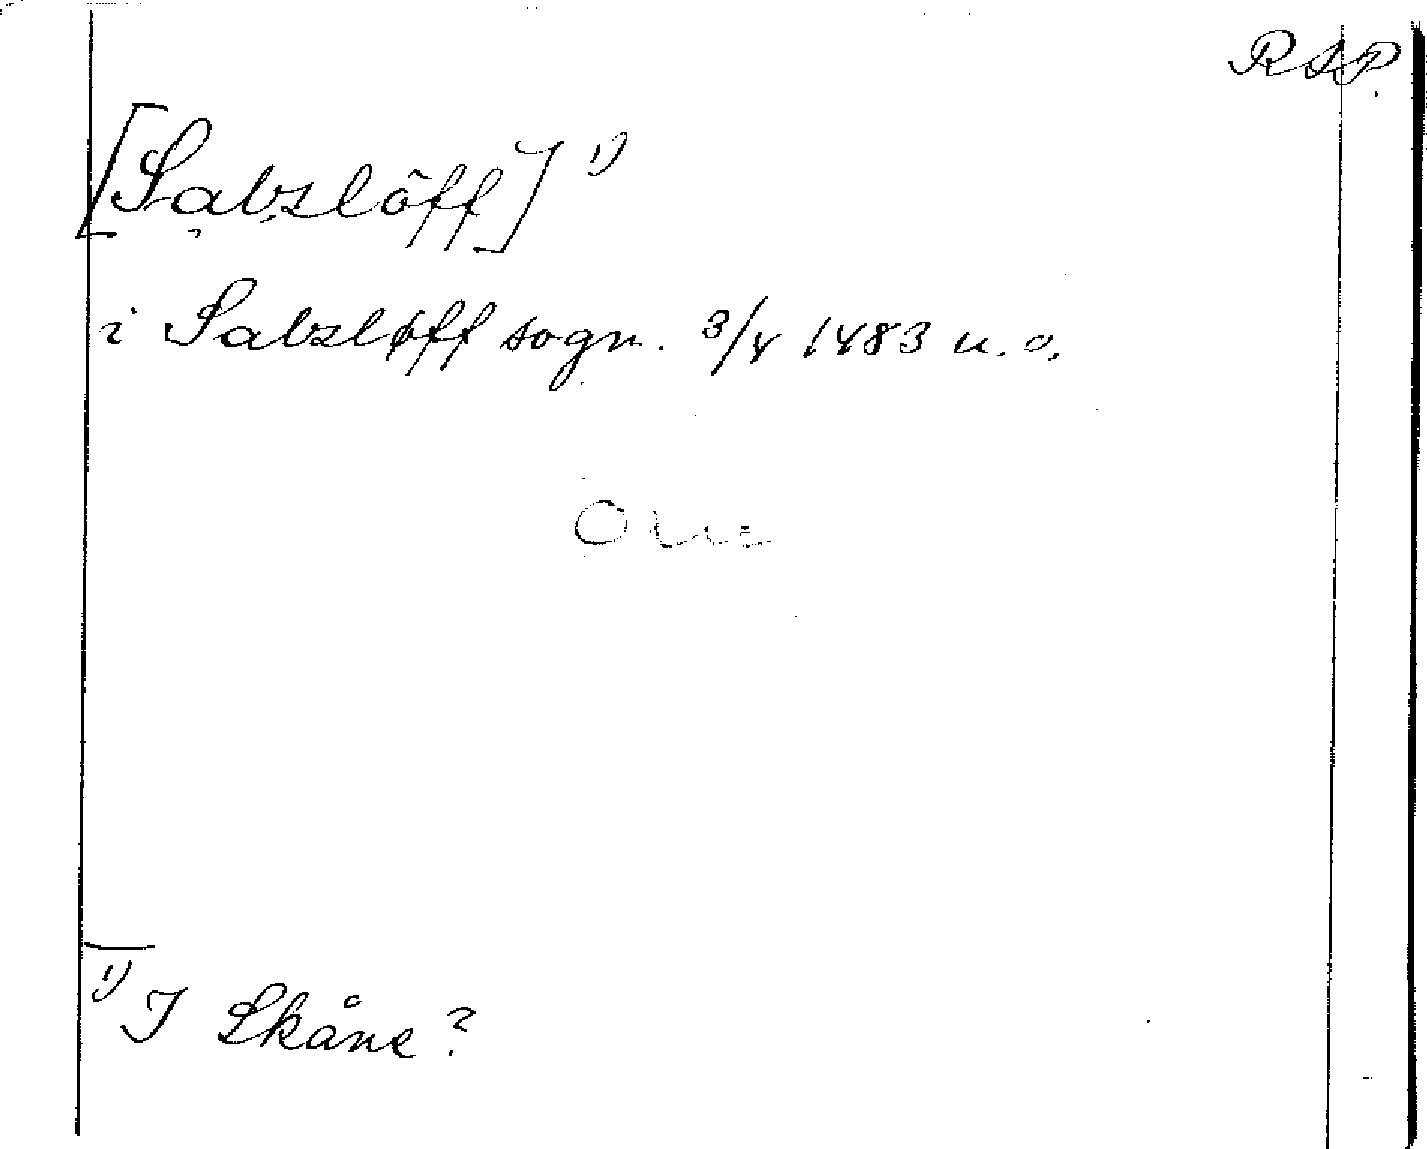 RAP.
[Sabzlöff] 1)
i Sabzløff sogn. 3/4 1483 u. o.
1) I Skåne?